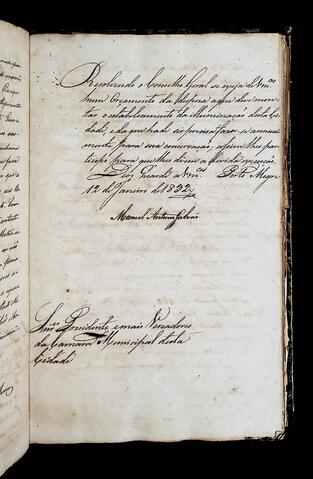 Resolvendo o Conselho Geral se exija de Vm.ces
hum Orçamento da despeza a que deve mon-
tar o estabelecimento da illuminação desta Ci-
dade, e da que ha de ser preciso fazer-se annual-
mente para sua conservação; assim lhes par-
ticipo para que lhe dem a devida execução.
Deos Guarde a Vm.ces Porto Alegre
12 de Janeiro de 1832
Manoel Antonio Galvão
Snr.es Presidente, e mais Vereadores
da Camara Municipal desta
Cidade